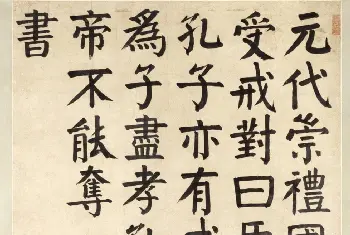 元代崇禮
受戒對曰
孔子亦有
爲子盡孝
帝不能奪
書